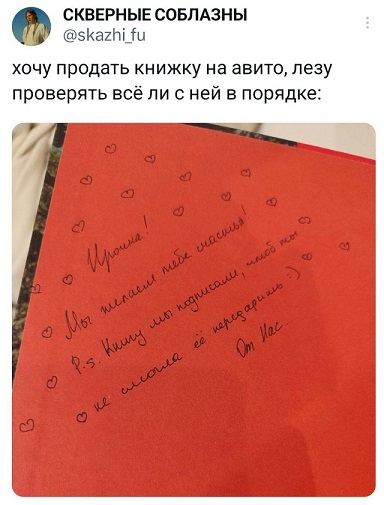 СКВЕРНЫЕ СОБЛАЗНЫ
@skazhi_fu
хочу продать книжку на авито, лезу
проверять всё ли с ней в порядке:
Ирочка!
Мы желаем тебе счастья!
P.S. Книгу мы подписали, чтоб ты
не смогла её передарить :)
От Нас.